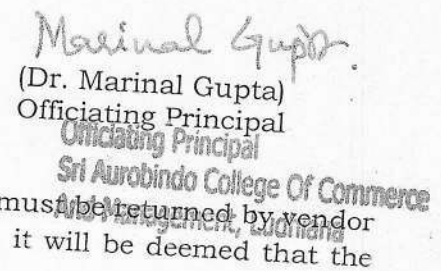 Marinal Gupta.
(Dr. Marinal Gupta)
Officiating Principal
Officiating Principal
Sri Aurobindo College Of Commerce
And Management, Ludhiana
must be returned by vendor
it will be deemed that the